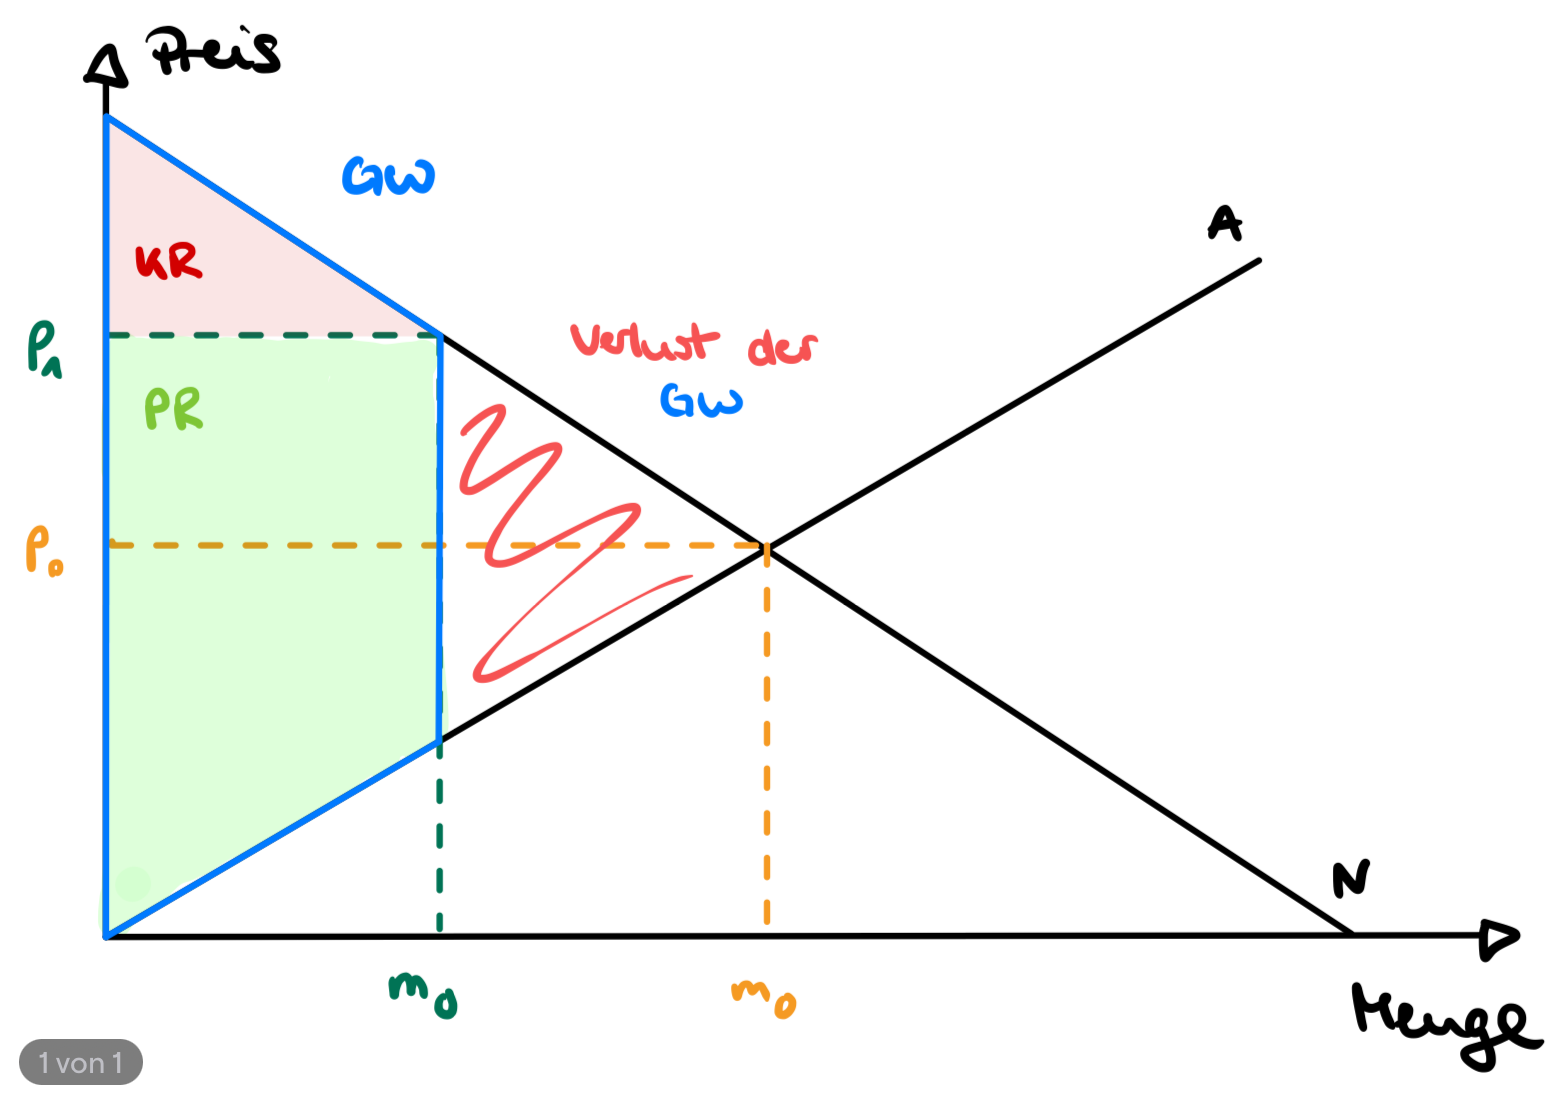 Preis
GW
A
KR
P1
Verlust der
GW
PR
P0
N
m0
m0
Menge
1 von 1